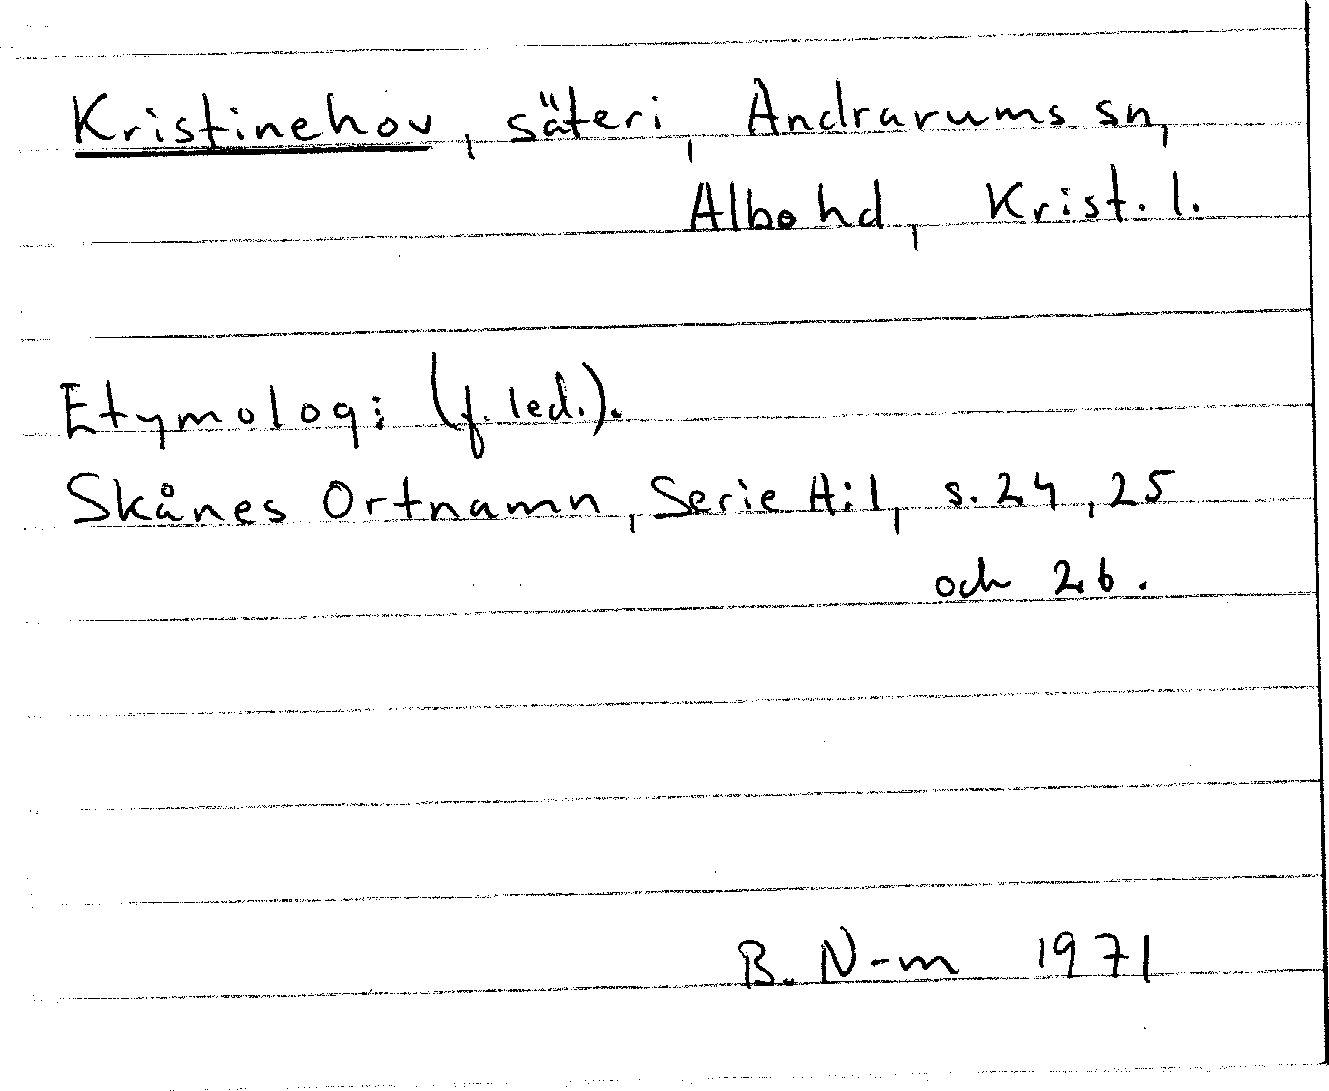 Kristinehov, säteri, Andrarums sn,
Albo hd, Krist. l.
Etymologi (f. led.).
Skånes Ortnamn, Serie A:1, s. 24, 25
och 26.
B. N-m 1971